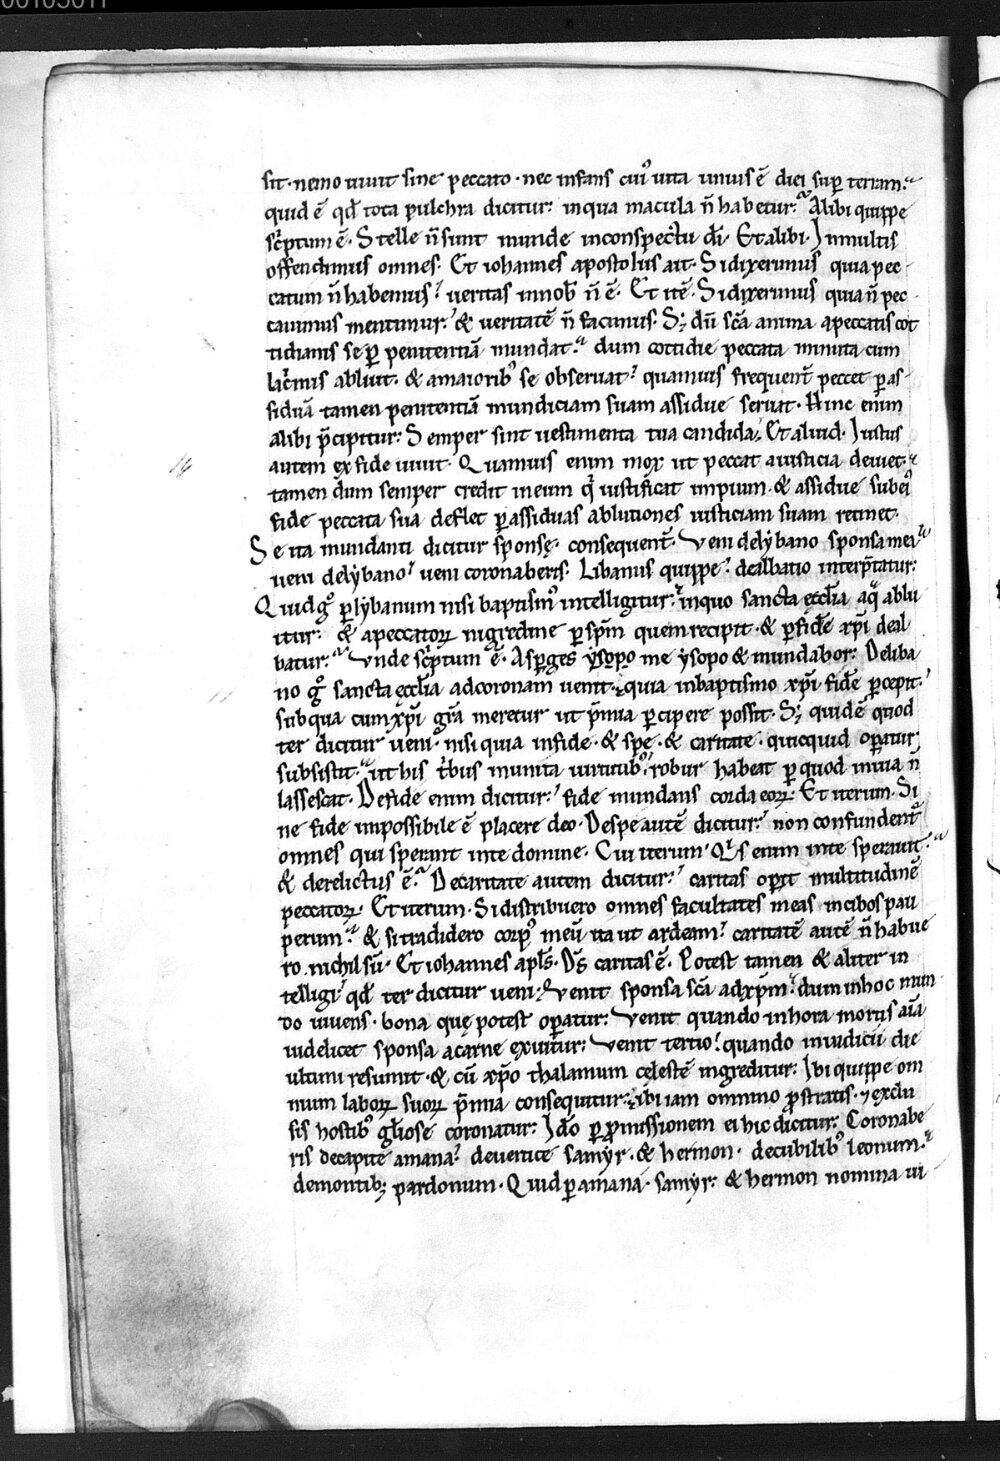 00105011
sit· nemo uiuit sine peccato· nec infans cui᷒ uita unius ē diei sup terram·
quid ē qđ tota pulchra dicitur: in qua macula ñ habetur· Alibi quippe
scͥptum ē· Stelle ñ sunt munde in conspectu dī· Et alibi· In multis
offendimus omnes· Et iohannes apostolus ait· Si dixerimus quia pec
catum ñ habemus? ueritas in nob̄ ñ ē· Et itē· Si dixerimus quia ñ pec
cauimus mentimur: & ueritatē ñ facimus· S; dū sc̄a anima a peccatis cot
tidianis se ꝑ penitentiā mundat· dum cottidie peccata minuta cum
lac̄mis abluit· & a maiorib᷒ se obseruat? quamuis frequent̄ peccet ꝑ as
siduā tamen penitentiā mundiciam suam assidue seruat· Hinc enim
alibi p̄cipitur: Semper sint uestimenta tua candida· Et aliud· Iustus
autem ex fide uiuit· Quamuis enim mox ut peccat a iusticia deuiet·
tamen dum semper credit in eum qͥ iustificat impium· & assidue sub ei᷒
fide peccata sua deflet ꝑ assiduas ablutiones iusticiam suam retinet·
Se ita mundanti dicitur sponsę· consequent̄· Veni de lybano sponsa mea
ueni de lybano? ueni coronaberis· Libanus quippe? dealbatio interp̄tatur:
Quid gͦ ꝑ lybanum nisi baptismū intelligitur: in quo sancta ęcclīa aq̄ ablu
itur: & a peccatoꝝ nigredine ꝑ sp̄m quem recipit· & ꝑ fidē xp̄i deal
batur: Vnde scͥptum ē· Asꝑges ysopo me ysopo & mundabor: De liba
no gͦ sancta ęcclīa ad coronam uenit· quia in baptismo xp̄i fidē ꝑcepit·
sub qua cum xp̄i gr̄a meretur ut p̄mia ꝑcipere possit· S; quidē quod
ter dicitur ueni· nisi quia in fide· & spe· & caritate· quicquid oꝑatur
subsistit· ut his tͥbus munita uirtutib᷒ robur habeat ꝑ quod in uia ñ
lassescat· De fide enim dicitur: fide mundans corda eoꝝ· Et iterum· Si
ne fide impossibile ē placere deo· De spe autē dicitur: non confundent̄
omnes qui sperant in te domine· Cui iterum· Qͥs enim in te sperauit·
& derelictus ē· De caritate autem dicitur: caritas oꝑit multitudinē
peccatoꝝ· Et iterum· Si distribuero omnes facultates meas in cibos pau
perum· & si tradidero corp᷒ meū ita ut ardeam? caritatē autē ñ habue
ro· nichil sū· Et iohannes apl̄s· Ds̄ caritas ē· Potest tamen & aliter in
telligi· qđ ter dicitur ueni· Venit sponsa sc̄a ad xp̄m· dum in hoc mun
do uiuens· bona quę potest oꝑatur: Venit quando in hora mortis aīa
uidelicet sponsa a carne exuitur: Venit tertio· quando in iudicii die
ultimi resumit· & cū xp̄o thalamum cęlestē ingreditur: Ibi quippe om
nium laboꝝ suoꝝ p̄mia consequitur· ibi iam omnino ꝓstratis· ⁊ exclu
sis hostib᷒ gl̄iose coronatur: Idō ꝑ ꝓmissionem ei hic dicitur: Coronabe
ris de capite amana? de uertice samyr· & hermon· de cubilib᷒ leonum·
de montib; pardorum· Quid ꝑ amana· samyr· & hermon nomina ui